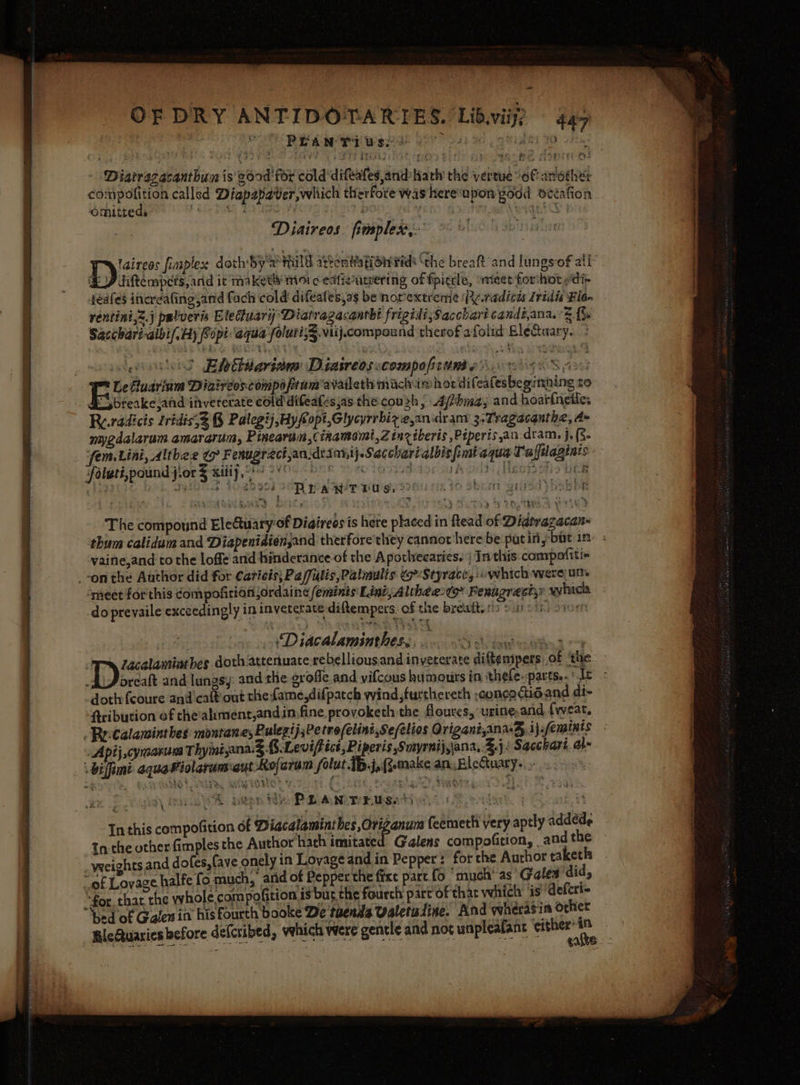 OF DRY ANTIDOTARIES. Lib.viij. 447
PLANTIUS.
Diatragacanthum is good for cold diseases, and hath the vertue of another
composition called Diapapaver, which therfore was here upon good occasion
omitted.
Diaireos simplex.
Diaireos simplex doth by a mild attentation rid the breast and lungs of all
distempers, and it maketh more easie uttering of spittle, meet for hot di-
seases increasing, and such cold diseases, as be not extreme. Re. radicis Iridis Flo-
rentini, ʒ.j pulveris Electuarij Diatragacanthi frigidi, Sacchari candi, ana. ʒ ß.
Sacchari albis. Hyssopi aqua soluti, ʒ. viij. compound therof a solid Electuary.
Electuarium Diaireos compositum.
Electuarium Diaireos compositum availeth much in hot diseases beginning to
breake, and inveterate cold diseases, as the cough, Asthma, and hoarsnesse;
Re. radicis Iridis, ℥ ß Pulegij, Hyssopi, Glycyrrhize, an. dram 3. Tragacanthe, A-
mygdalarum amararum, Pinearum, Cinamomi, Zinziberis, Piperis, an dram. j. ß.
sem. Lini, Althee & Fenugreci, an. dram, ij. Sacchari albissimi aqua Tussilaginis
soluti, pound j. or ℥ xiiij.
PLANTIUS.
The compound Electuary of Diaireos is here placed in stead of Diatragacan-
thum calidum and Diapenidion, and therfore they cannot here be put in, but in
vaine, and to the losse and hinderance of the Apothecaries. In this compositi-
on the Author did for Caricis, Passulis, Palmulis & Styrace, which were un-
meet for this composition, ordaine seminis Lini, Althee & Fenugreci, which
do prevaile exceedingly in inveterate distempers of the breast.
Diacalaminthes.
Diacalaminthes doth attenuate rebellious and inveterate distempers of the
breast and lungs, and the grosse and viscous humours in these parts. It
doth scoure and cast out the same, dispatch wind, furthereth concoctio and di-
stribution of the aliment, and in fine provoketh the floures, urine, and sweat.
Re. Calaminthes montane, Pulegij, Petroselini, Seselios Origani, ana. ʒ. ij. seminis
Apij, cymarum Thymi, ana. ʒ. ß. Levistici, Piperis, Smyrnij, ana, ʒ. j. Sacchari al-
bissimi aqua Violarum aut Rosarum solut. lb. j. ß. make an Electuary.
PLANTIUS.
In this composition of Diacalaminthes, Origanum seemeth very aptly addede
In the other simples the Author hath imitated Galens composition, and the
weights and doses, save onely in Lovage and in Pepper: for the Author taketh
of Lovage halfe so much, and of Pepper the sixt part so much as Galen did,
for that the whole composition is but the fourth part of that which is descri-
bed of Galen in his fourth booke De tuenda Valetudine. And wheras in other
Electuaries before described, which were gentle and not unpleasant either in
taste